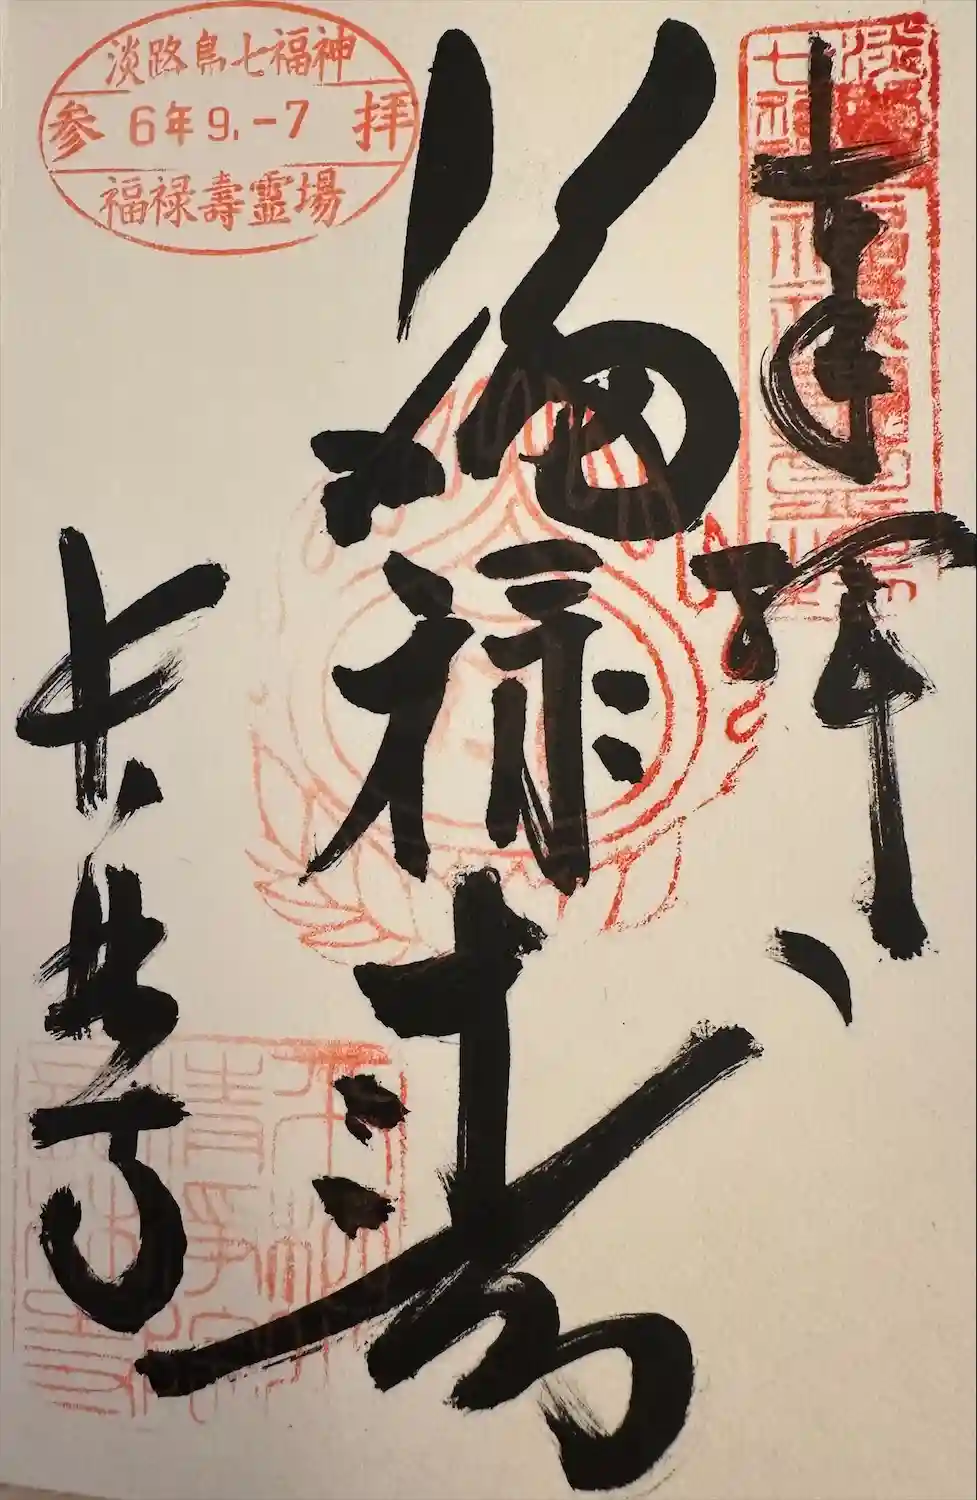 淡路島七福神
参 6年9.-7 拝
福禄壽霊場
奉拝
福禄寿
長林寺